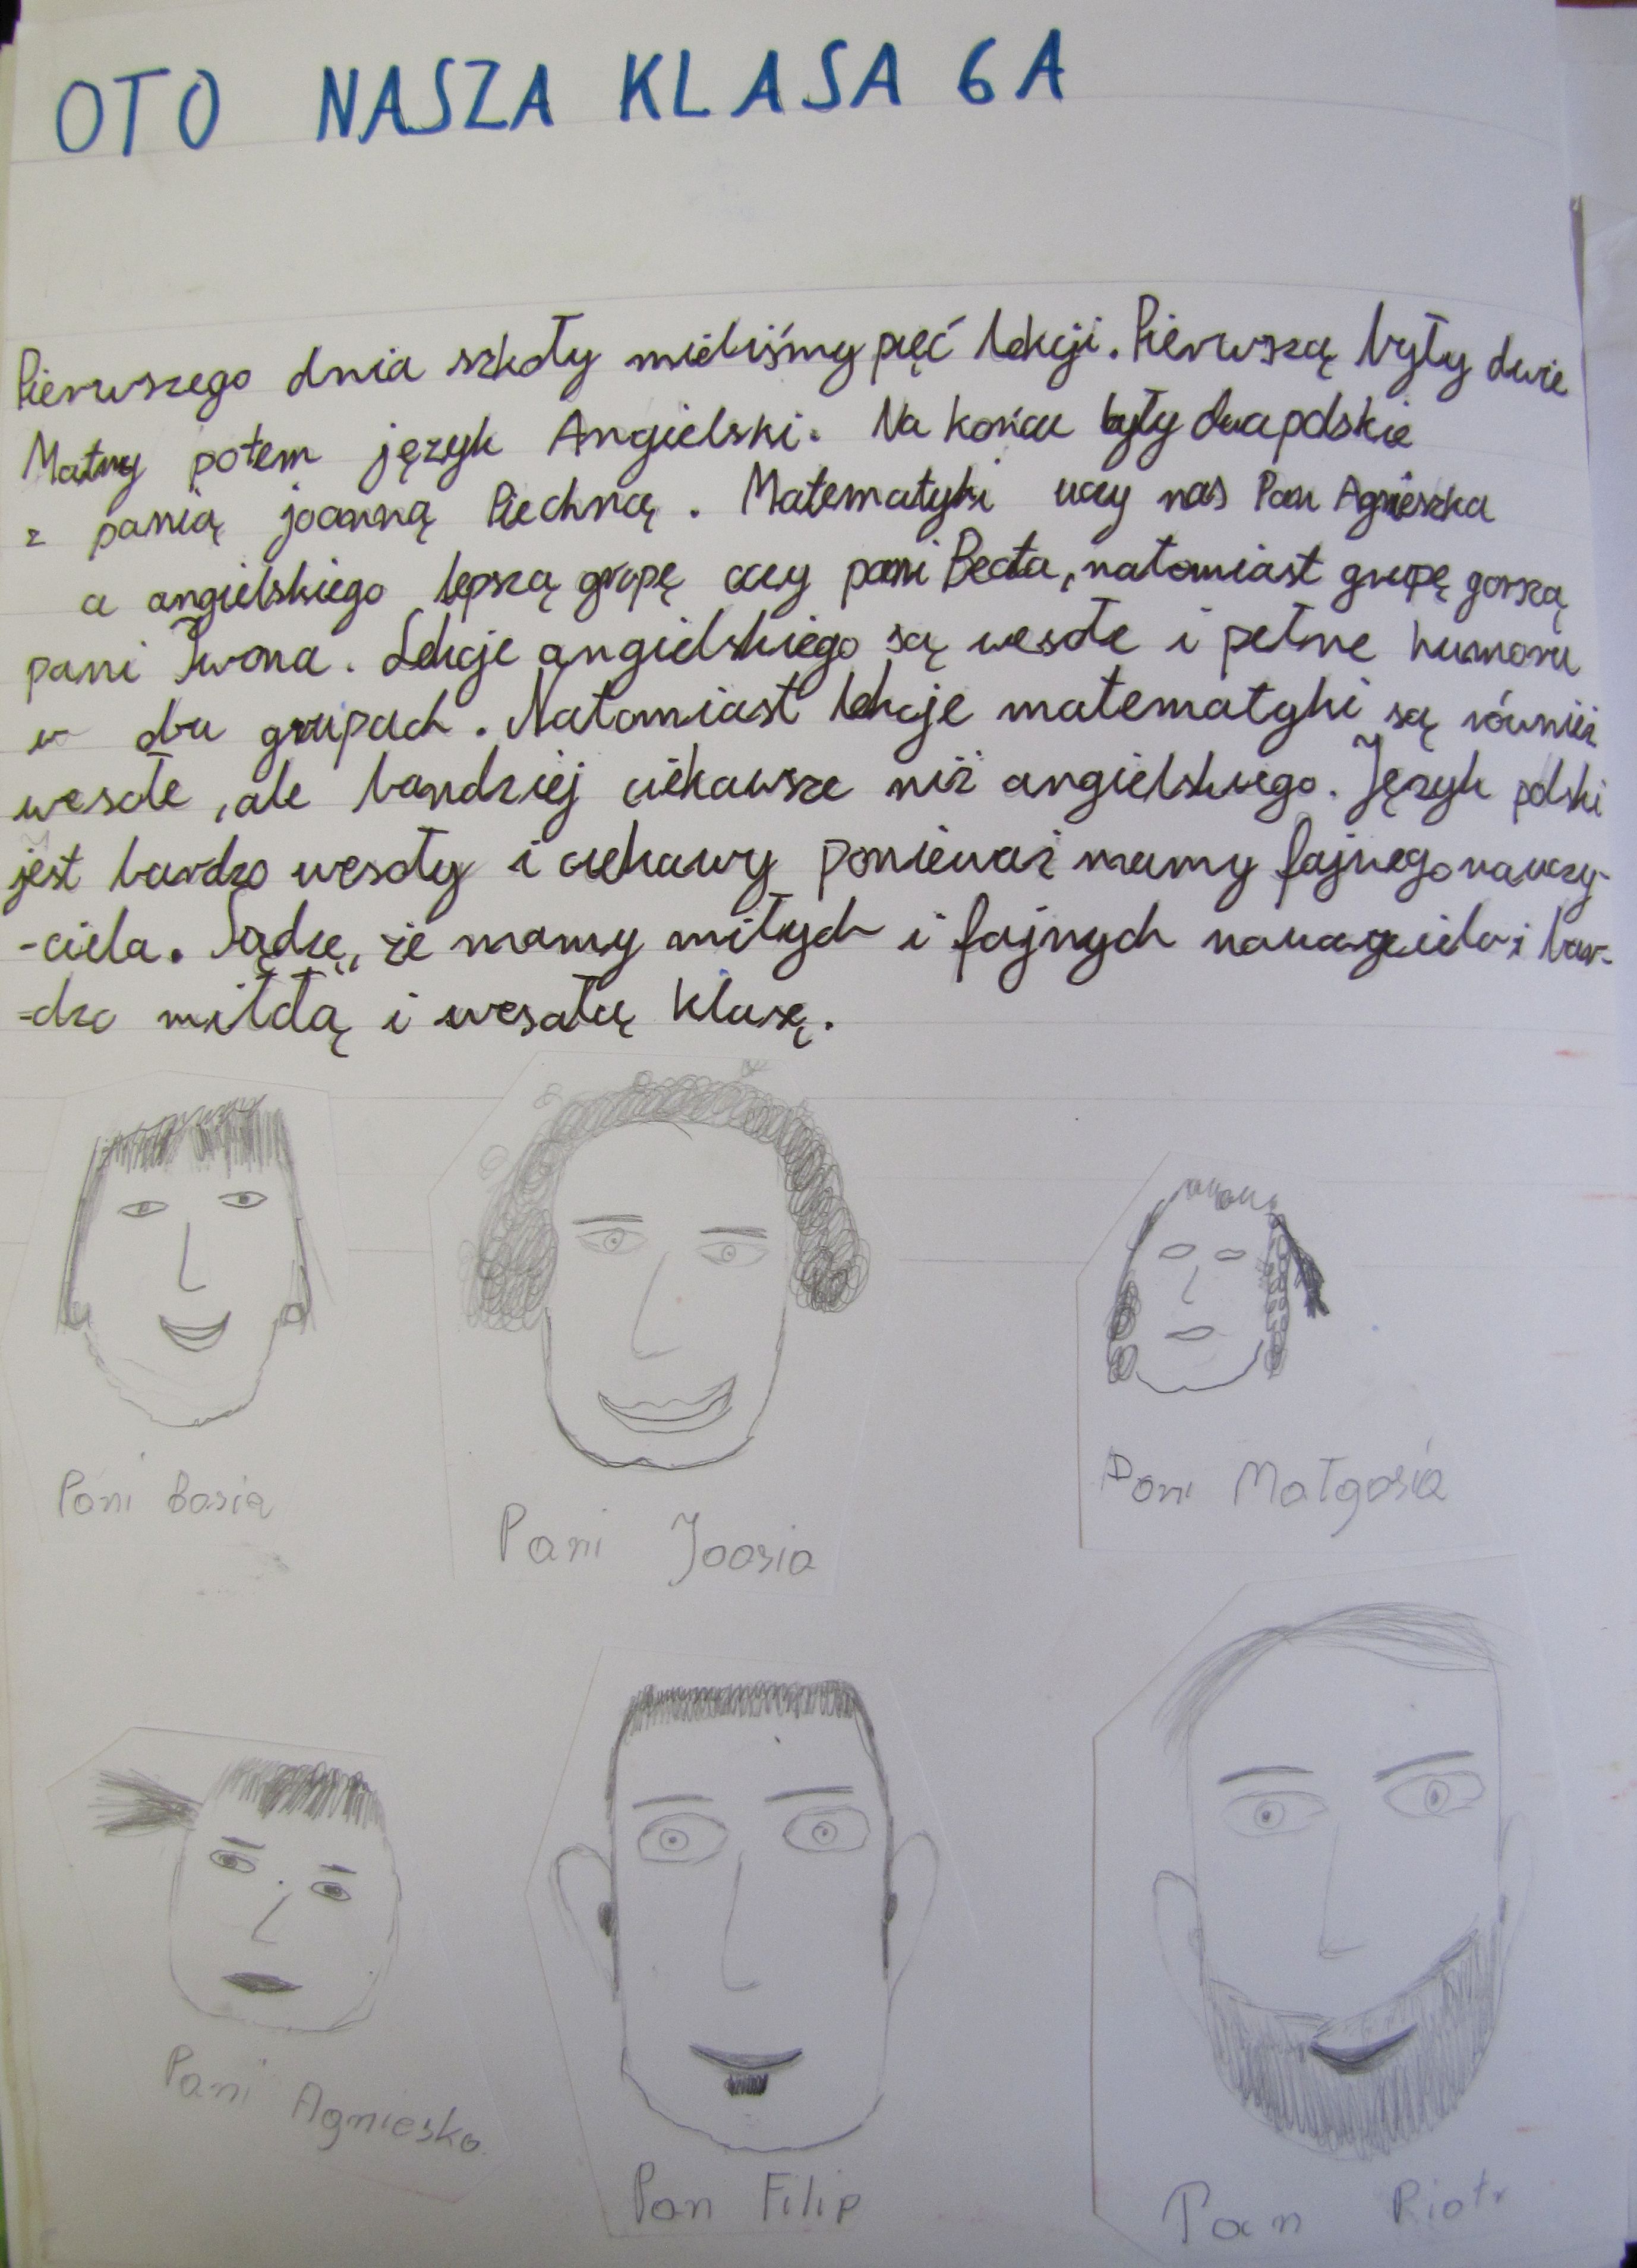 OTO NASZA KLASA 6A
Pierwszego dnia szkoły mieliśmy pięć lekcji. Pierwszą były dwie
Matmy potem język Angielski. Na końcu były dwa polskie
z panią joanną Piechną. Matematyki uczy nas Pani Agnieszka
a angielskiego lepszą grupę uczy pani Beata, natomiast grupę gorszą
pani Iwona. Lekcje angielskiego są wesołe i pełne humoru
w obu grupach. Natomiast lekcje matematyki są również
wesołe, ale bardziej ciekawsze niż angielskiego. Język polski
jest bardzo wesoły i ciekawy ponieważ mamy fajnego nauczy-
-ciela. Sądzę, że mamy miłych i fajnych nauczycieli i bar-
-dzo miłą i wesołą klasę.
Pani Basia
Pani Joasia
Pani Małgosia
Pani Agnieska
Pan Filip
Pan Piotr